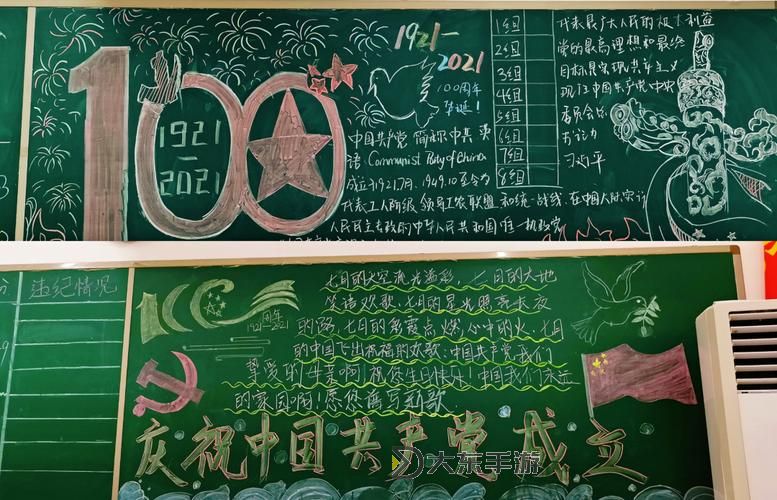 100
1921
—
2021
1921—
2021
100周年
华诞！
中国共产党 简称中共 英
语 Communist Party of China
成立于1921.7月，1949.10至今为
代表工人阶级 领导工农联盟 和统一战线，在中国大陆实行
人民民主专政的中华人民共和国唯一执政党
1组
2组
3组
4组
5组
6组
7组
8组
代表最广大人民的根本利益
党的最高理想和最终
目标是实现共产主义
现任中国共产党中央
委员会总
书记为
习近平
违纪情况
100
周年
1921-2021
七月的天空流光溢彩，七月的大地
笑语欢歌，七月的星光照亮长夜
的路，七月的雷霆点燃心中的火，七月
的中国飞出祝福的欢歌：中国共产党我们
挚爱的母亲啊！祝您生日快乐！中国我们永远
的家园啊！愿您谱写新歌
庆祝中国共产党成立
大东手游